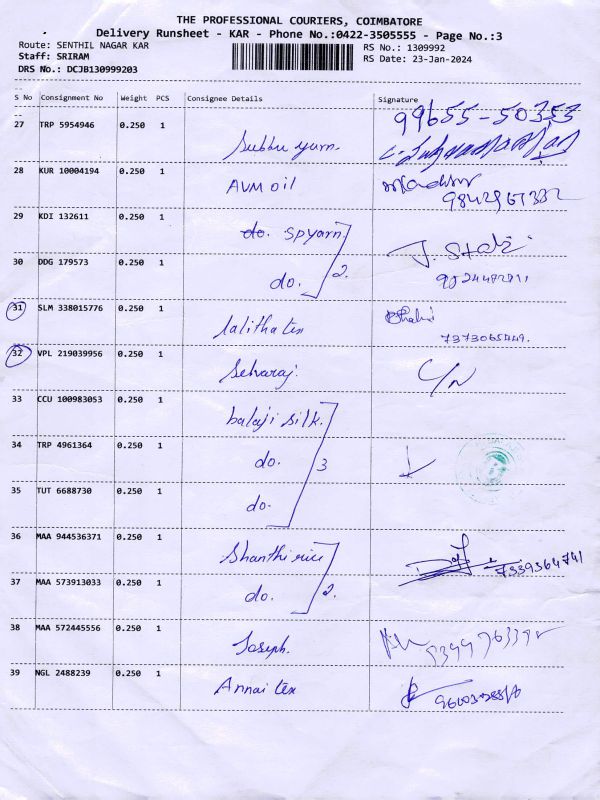 THE PROFESSIONAL COURIERS, COIMBATORE
Delivery Runsheet - KAR - Phone No.:0422-3505555 - Page No.:3
Route: SENTHIL NAGAR KAR
RS No.: 1309992
Staff: SRIRAM
RS Date: 23-Jan-2024
DRS No.: DCJB130999203
S No Consignment No Weight PCS Consignee Details Signature
27 TRP 5954946 0.250 1 99655-50353
Subbu yarn.
28 KUR 10004194 0.250 1 AVM oil
29 KDI 132611 0.250 1 do. SP yarn
30 DDG 179573 0.250 1 do. 2.
31 SLM 338015776 0.250 1 Lalitha tex
32 VPL 219039956 0.250 1 Selvaraj. C/N
33 CCU 100983053 0.250 1 balaji silk.
34 TRP 4961364 0.250 1 do. 3
35 TUT 6688730 0.250 1 do.
36 MAA 944536371 0.250 1 Shanthi rice 7339364741
37 MAA 573913033 0.250 1 do. 2.
38 MAA 572445556 0.250 1 Joseph.
39 NGL 2488239 0.250 1 Annai tex